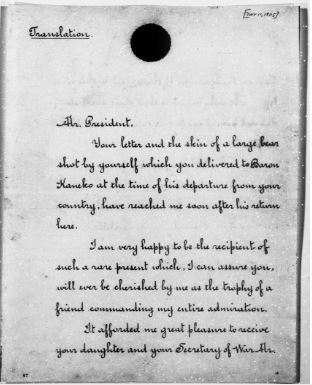 Translation.
Mr. President.
Your letter and the skin of a large bear
shot by yourself which you delivered to Baron
Kaneko at the time of his departure from your
country, have reached me soon after his return
here.
I am very happy to be the recipient of
such a rare present which, I can assure you,
will ever be cherished by me as the trophy of a
friend commanding my entire admiration.
It afforded me great pleasure to receive
your daughter and your Secretary of War Mr.